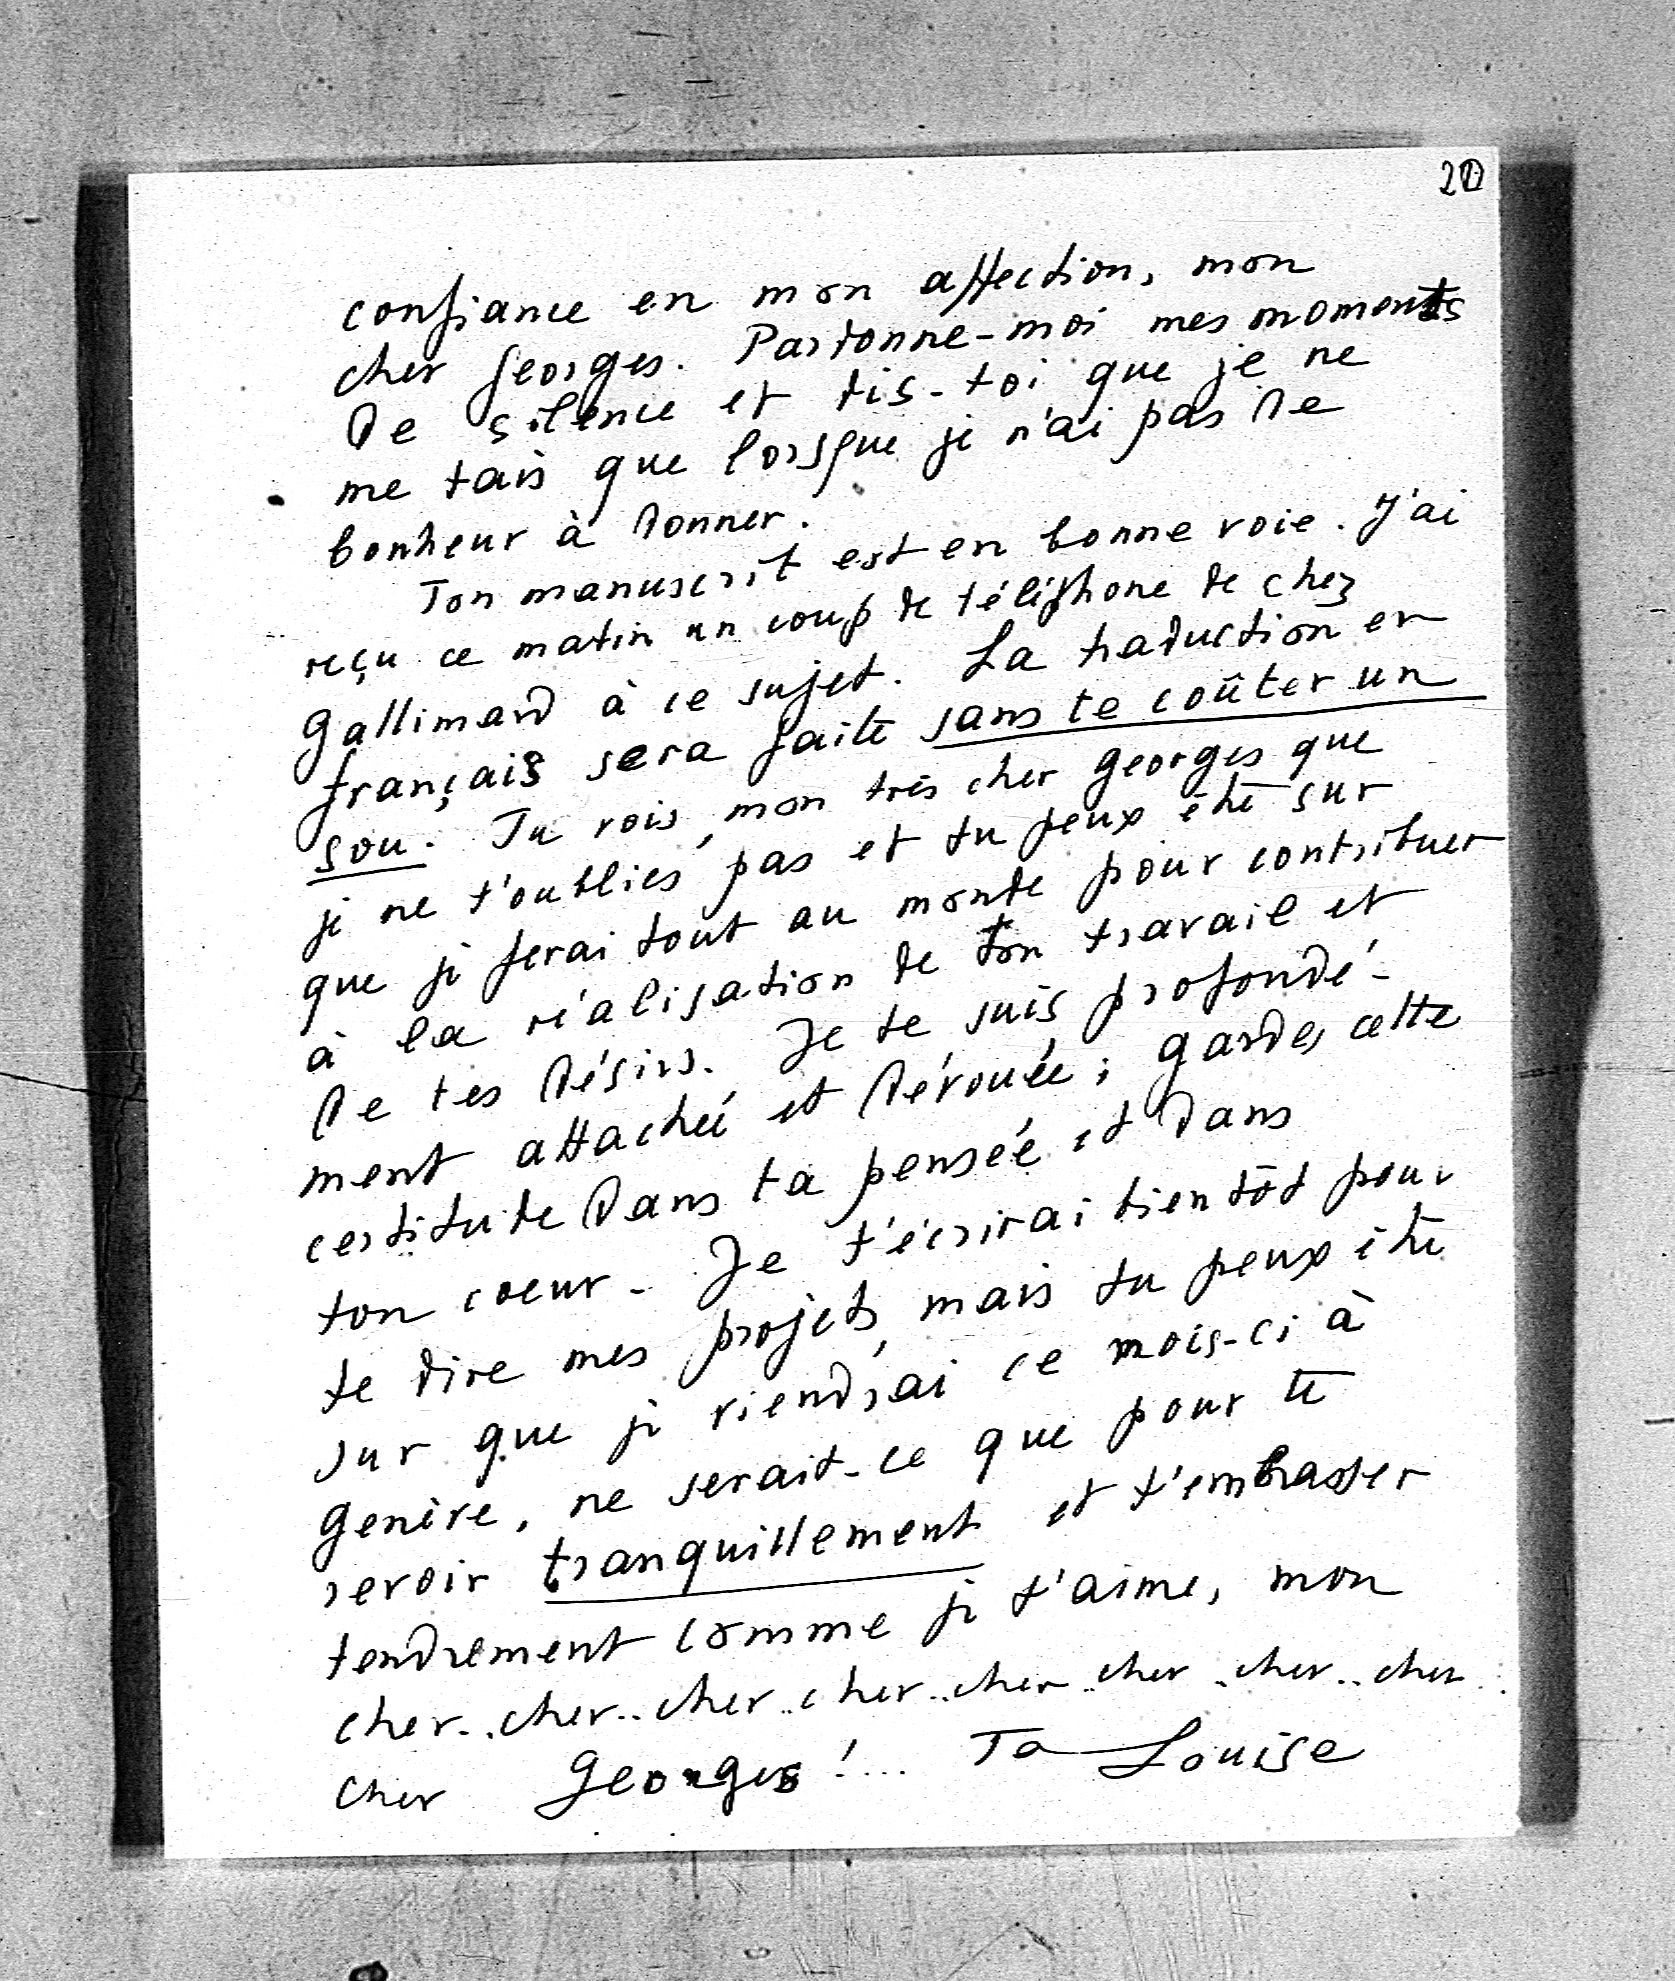 20
confiance en mon affection, mon
cher Georges. Pardonne-moi mes moments
de silence et dis-toi que je ne
me tais que lorsque je n'ai pas de
bonheur à donner.
Ton manuscrit est en bonne voie. J'ai
reçu ce matin un coup de téléphone de chez
Gallimard à ce sujet. La traduction en
français sera faite sans te coûter un
sou. Tu vois, mon très cher Georges que
je ne t'oublies pas et tu peux être sur
que je ferai tout au monde pour contribuer
à la réalisation de ton travail et
de tes désirs. Je te suis profondé-
ment attachée et dévouée; gardes cette
certitude dans ta pensée et dans
ton coeur. Je t'écrirai bientôt pour
te dire mes projets, mais tu peux être
sur que je viendrai ce mois-ci à
Genève, ne serait-ce que pour te
revoir tranquillement et t'embrasser
tendrement comme je t'aime, mon
cher.. cher.. cher.. cher.. cher.. cher.. cher.. cher..
cher Georges!... Ta Louise